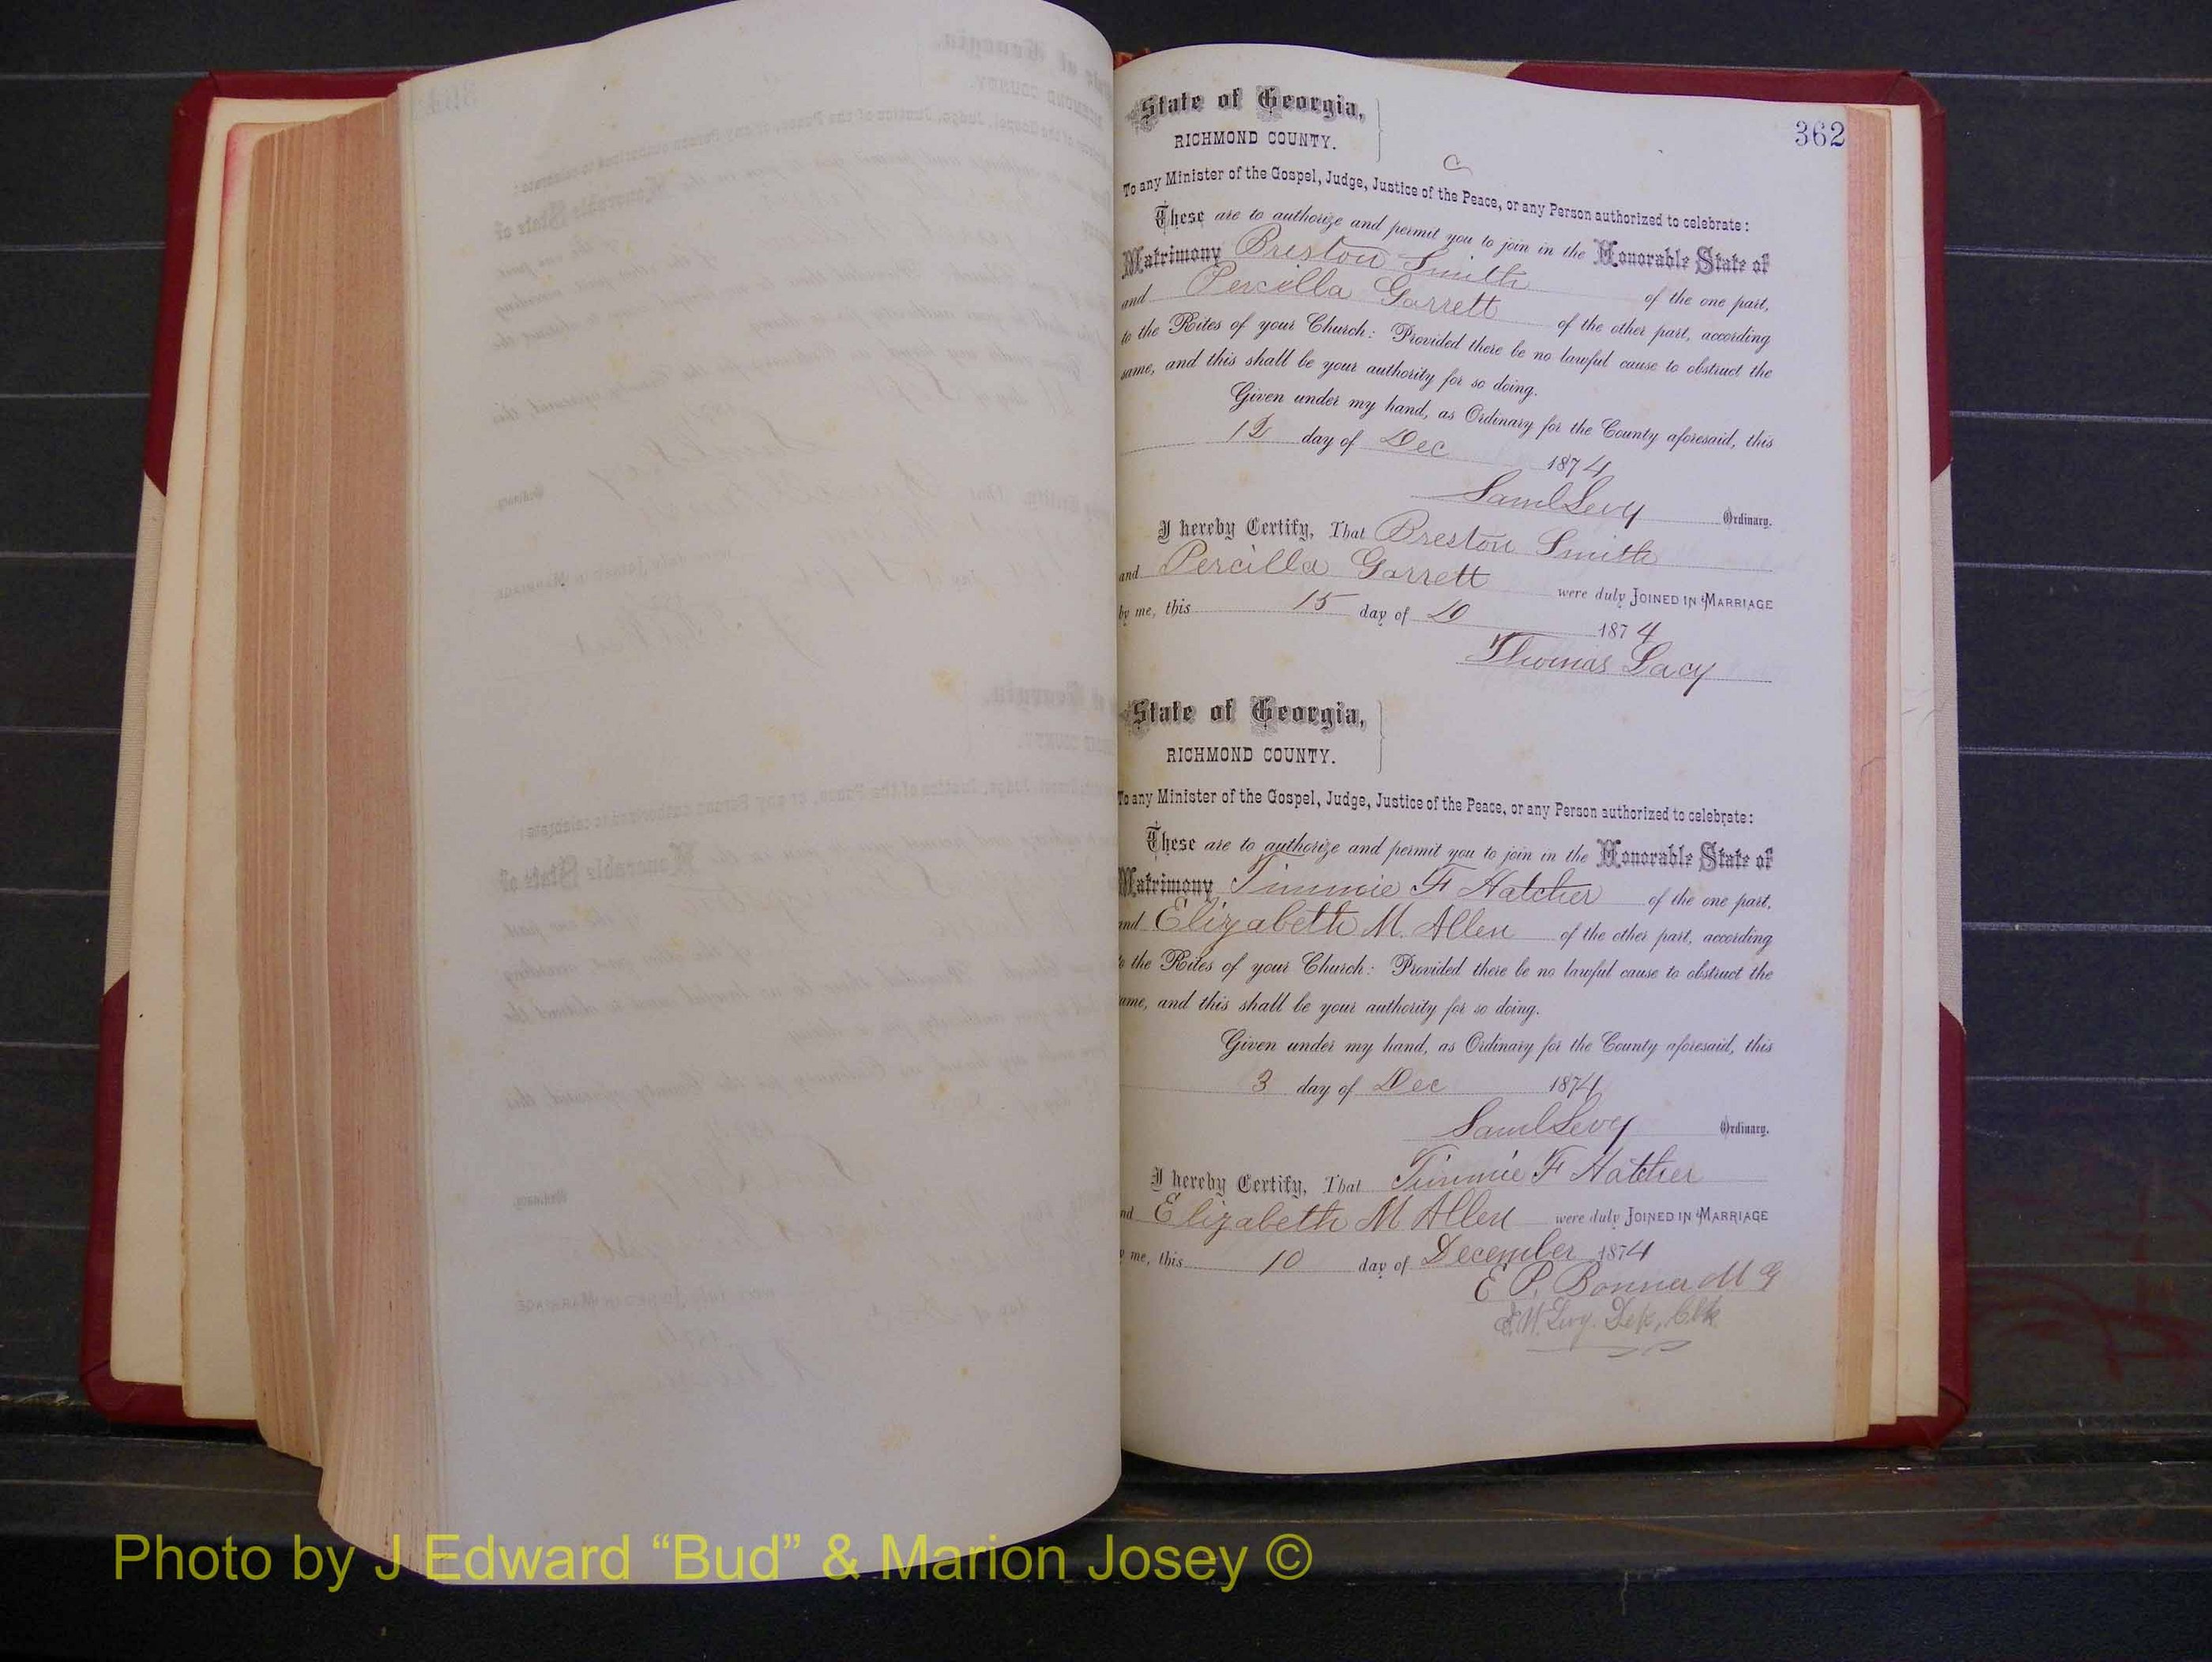 362
State of Georgia,
RICHMOND COUNTY.
C
To any Minister of the Gospel, Judge, Justice of the Peace, or any Person authorized to celebrate:
These are to authorize and permit you to join in the Honorable State of
Matrimony Preston Smith of the one part,
and Percilla Garrett of the other part, according
to the Rites of your Church: Provided there be no lawful cause to obstruct the
same, and this shall be your authority for so doing.
Given under my hand, as Ordinary for the County aforesaid, this
12 day of Dec 1874
Saml Levy Ordinary.
I hereby Certify, That Preston Smith
and Percilla Garrett were duly JOINED IN MARRIAGE
by me, this 15 day of D 1874
Thomas Lacy
State of Georgia,
RICHMOND COUNTY.
To any Minister of the Gospel, Judge, Justice of the Peace, or any Person authorized to celebrate:
These are to authorize and permit you to join in the Honorable State of
Matrimony Timmie F Hatcher of the one part,
and Elizabeth M. Allen of the other part, according
to the Rites of your Church: Provided there be no lawful cause to obstruct the
same, and this shall be your authority for so doing.
Given under my hand, as Ordinary for the County aforesaid, this
3 day of Dec 1874
Saml Levy Ordinary.
I hereby Certify, That Timmie F Hatcher
and Elizabeth M Allen were duly JOINED IN MARRIAGE
by me, this 10 day of December 1874
E P. Bonner M G
E.W. Levy. Dep, Clk
Photo by J Edward “Bud” & Marion Josey ©